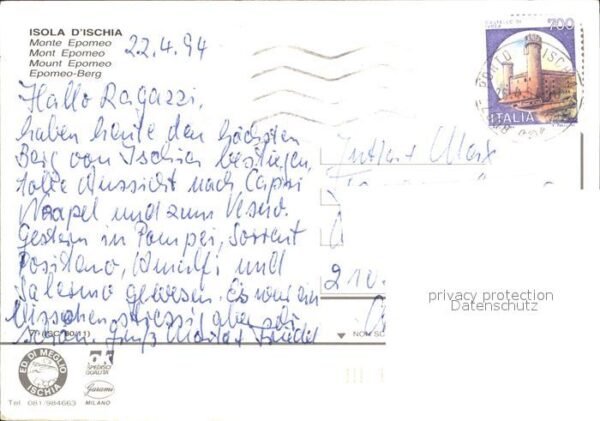 ISOLA D'ISCHIA
Monte Epomeo
Mont Epomeo
Mount Epomeo
Epomeo-Berg
22.4.94
Hallo Ragazzi,
haben heute den höchsten
Berg von Ischia bestiegen,
tolle Aussicht nach Capri
Neapel und zum Vesuv.
Gestern in Pompei, Sorrent
Positano, Amalfi und
Salerno gewesen. Es war ein
bisschen stressig aber
schön. Gruß
700
ITALIA
210
privacy protection
Datenschutz
NON SU
ED. DI MEGLIO
ISCHIA
Tel 081 984663
ok
SPEDISCI
QUALITÀ
Garami
MILANO